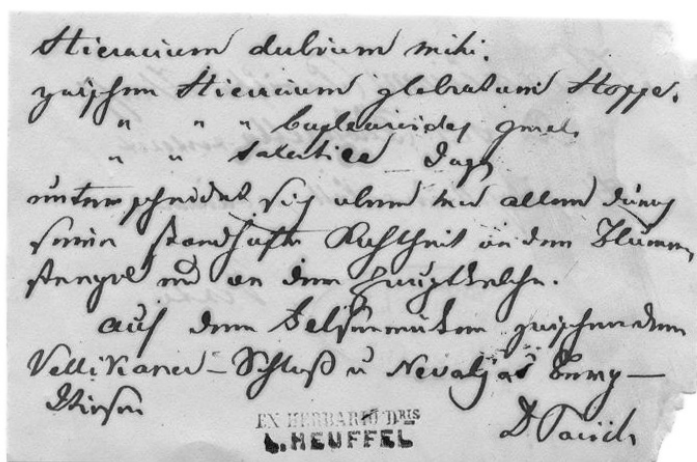 Hieracium dubium mihi.
zwischen Hieracium glabratum Hoppe.
" " " bupleuroides Gmel.
" " saxatile Jacq
unterscheidet sich aber von allen durch
seine standhafte Rauhheit an dem Blumen
stengel und an dem Hauptkelche.
auf dem Felsenrücken zwischen dem
Vellikaner-Schloß u Nevaljas Berg-
wiesen
EX HERBARIO DRIS
L. HEUFFEL
D